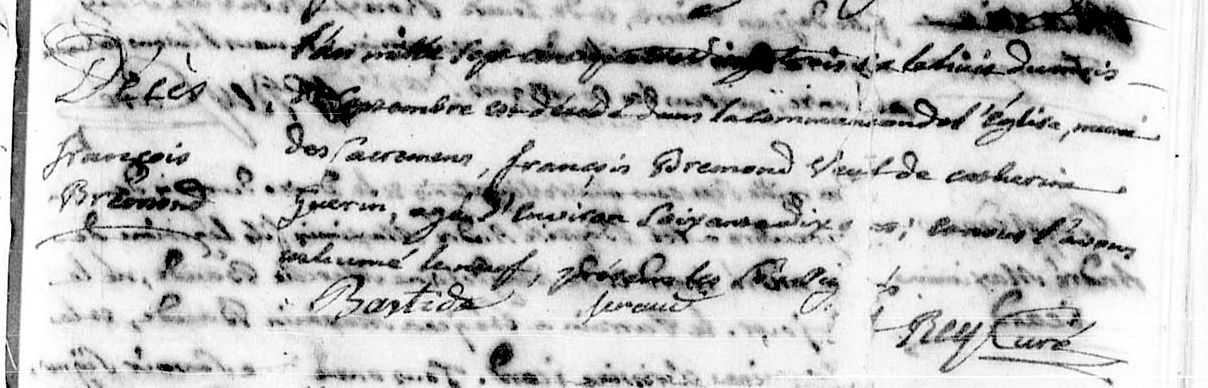 Décès
françois
Brémond
L'an mille sept cent quatre vingt trois et le huit du mois
de Septembre est décédé dans la communion de l'église, muni
des sacremens, françois Bremond veuf de catherine
Guerin, agé d'environ soixante dix ans; et nous l'avons
inhumé le neuf, présents les
Bastide
Rey Curé